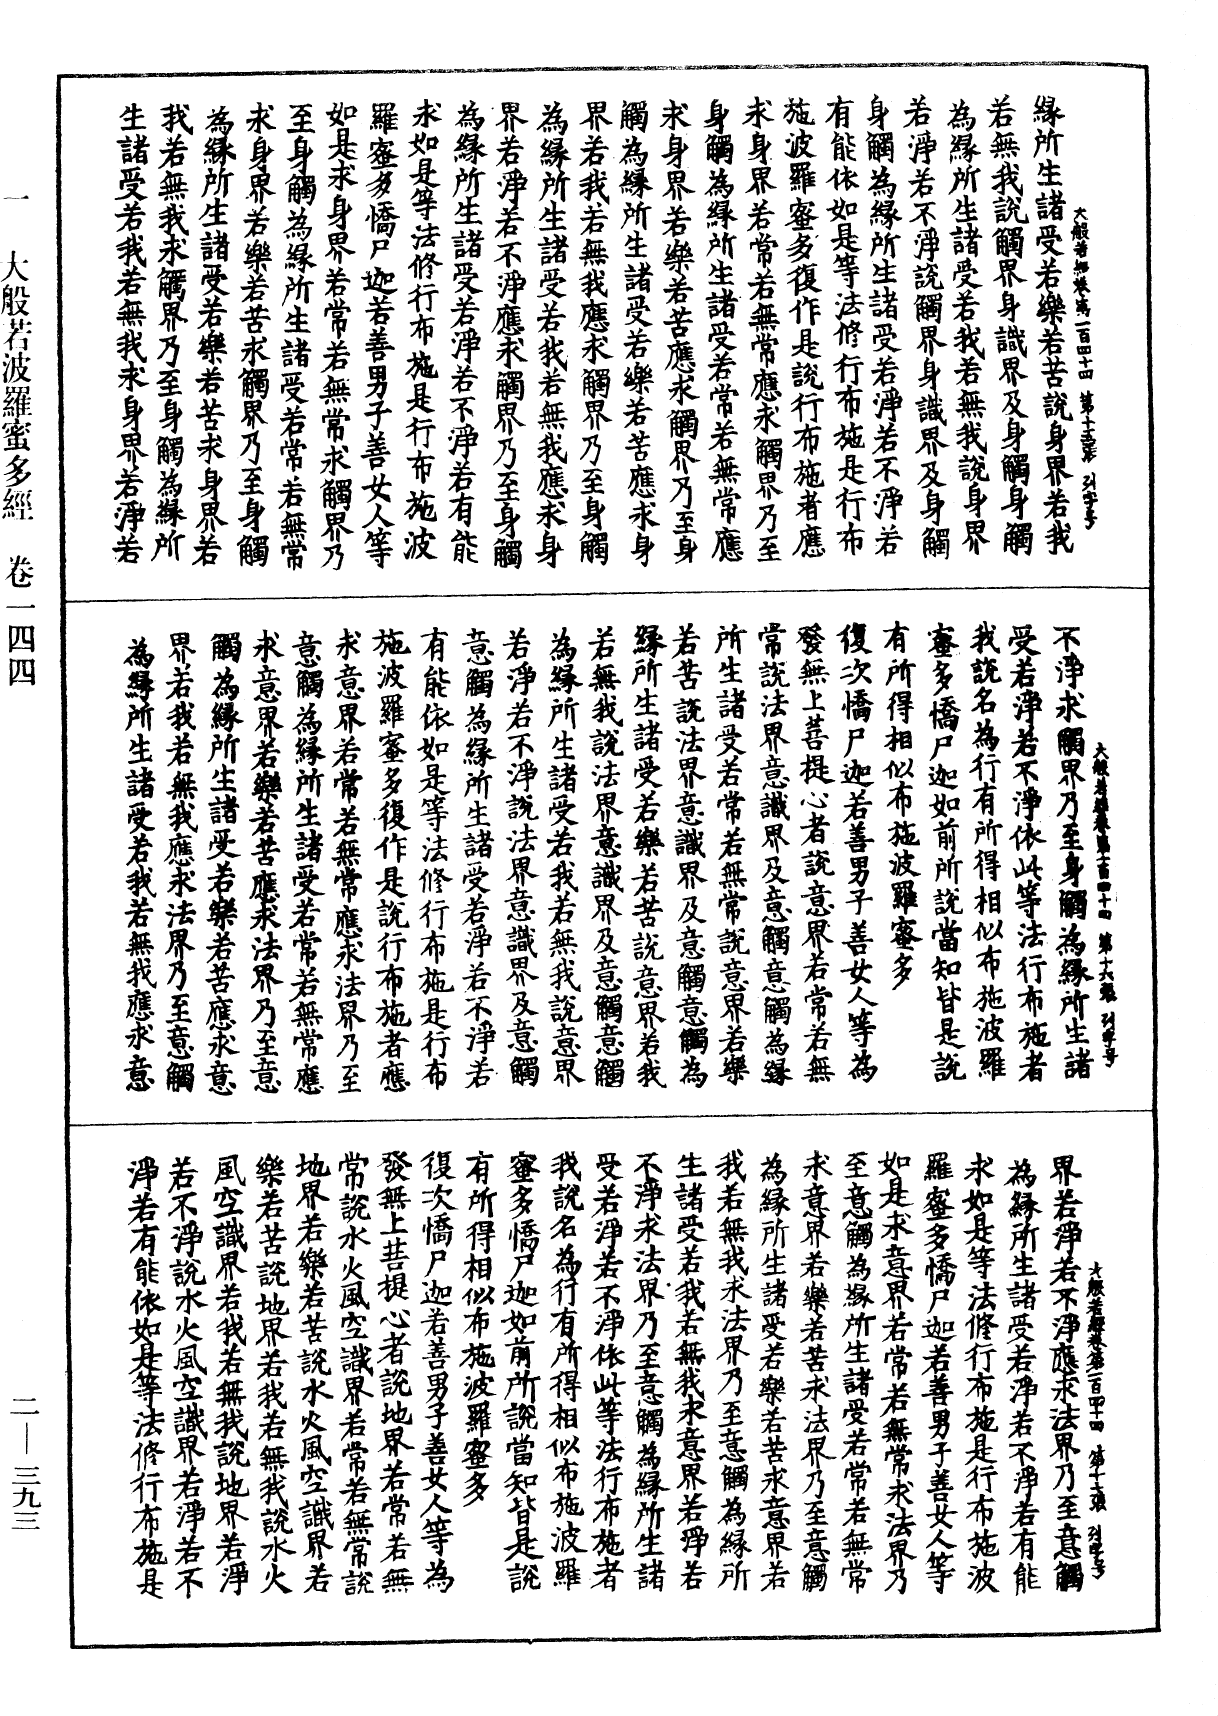 大般若經卷第一百四十四 第十五張 列字号
緣所生諸受若樂若苦說身界若我
若無我說觸界身識界及身觸身觸
為緣所生諸受若我若無我說身界
若淨若不淨說觸界身識界及身觸
身觸為緣所生諸受若淨若不淨若
有能依如是等法修行布施是行布
施波羅蜜多復作是說行布施者應
求身界若常若無常應求觸界乃至
身觸為緣所生諸受若常若無常應
求身界若樂若苦應求觸界乃至身
觸為緣所生諸受若樂若苦應求身
界若我若無我應求觸界乃至身觸
為緣所生諸受若我若無我應求身
界若淨若不淨應求觸界乃至身觸
為緣所生諸受若淨若不淨若有能
求如是等法修行布施是行布施波
羅蜜多憍尸迦若善男子善女人等
如是求身界若常若無常求觸界乃
至身觸為緣所生諸受若常若無常
求身界若樂若苦求觸界乃至身觸
為緣所生諸受若樂若苦求身界若
我若無我求觸界乃至身觸為緣所
生諸受若我若無我求身界若淨若
大般若經卷第一百四十四 第十六張 列字号
不淨求觸界乃至身觸為緣所生諸
受若淨若不淨依此等法行布施者
我說名為行有所得相似布施波羅
蜜多憍尸迦如前所說當知皆是說
有所得相似布施波羅蜜多
復次憍尸迦若善男子善女人等為
發無上菩提心者說意界若常若無
常說法界意識界及意觸意觸為緣
所生諸受若常若無常說意界若樂
若苦說法界意識界及意觸意觸為
緣所生諸受若樂若苦說意界若我
若無我說法界意識界及意觸意觸
為緣所生諸受若我若無我說意界
若淨若不淨說法界意識界及意觸
意觸為緣所生諸受若淨若不淨若
有能依如是等法修行布施是行布
施波羅蜜多復作是說行布施者應
求意界若常若無常應求法界乃至
意觸為緣所生諸受若常若無常應
求意界若樂若苦應求法界乃至意
觸為緣所生諸受若樂若苦應求意
界若我若無我應求法界乃至意觸
為緣所生諸受若我若無我應求意
大般若經卷第一百四十四 第十七張 列字号
界若淨若不淨應求法界乃至意觸
為緣所生諸受若淨若不淨若有能
求如是等法修行布施是行布施波
羅蜜多憍尸迦若善男子善女人等
如是求意界若常若無常求法界乃
至意觸為緣所生諸受若常若無常
求意界若樂若苦求法界乃至意觸
為緣所生諸受若樂若苦求意界若
我若無我求法界乃至意觸為緣所
生諸受若我若無我求意界若淨若
不淨求法界乃至意觸為緣所生諸
受若淨若不淨依此等法行布施者
我說名為行有所得相似布施波羅
蜜多憍尸迦如前所說當知皆是說
有所得相似布施波羅蜜多
復次憍尸迦若善男子善女人等為
發無上菩提心者說地界若常若無
常說水火風空識界若常若無常說
地界若樂若苦說水火風空識界若
樂若苦說地界若我若無我說水火
風空識界若我若無我說地界若淨
若不淨說水火風空識界若淨若不
淨若有能依如是等法修行布施是
一 大般若波羅蜜多經 卷一四四
二—三九三